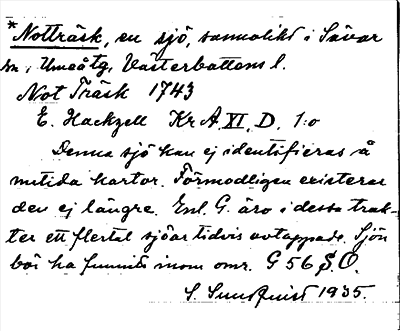 *Notträsk, en sjö, sannolikt i Sävar
sn, Umeåtg, Västerbottens l.
Not Träsk 1743
E. Hackzell Kr A XI, D, 1:o
Denna sjö kan ej identifieras å
nutida kartor. Förmodligen existerar
den ej längre. Enl. G. äro i dessa trak-
ter ett flertal sjöar tidvis avtappade. Sjön
bör ha funnits inom omr. G 56 S.O.
S. Sundquist 1935.